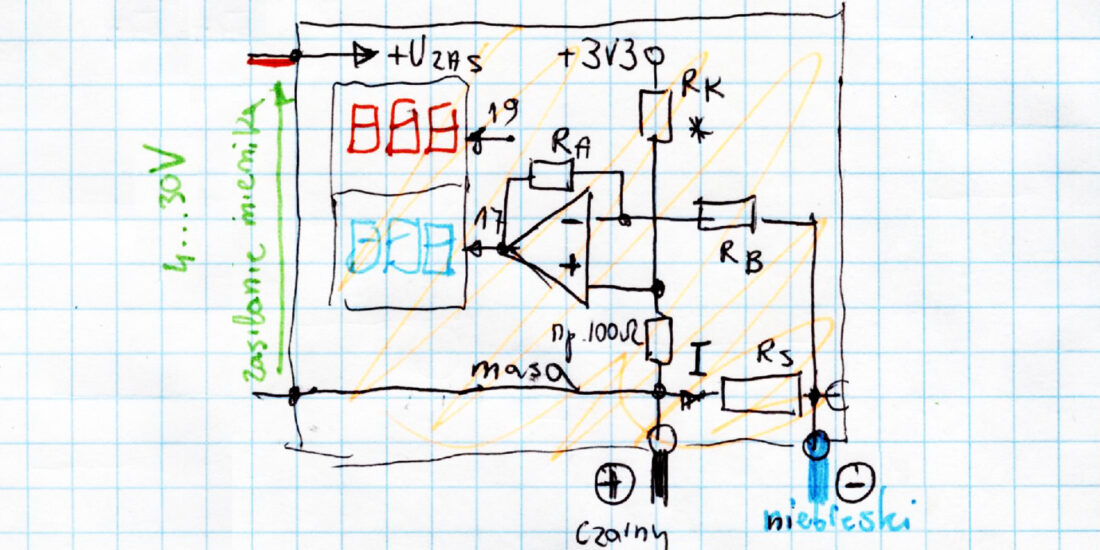 +U ZAS
+3V3
RK
*
888
19
RA
4...30V
zasilanie miernika
17
-
888
+
RB
np. 100Ω
I
RS
masa
+
-
czarny
niebieski